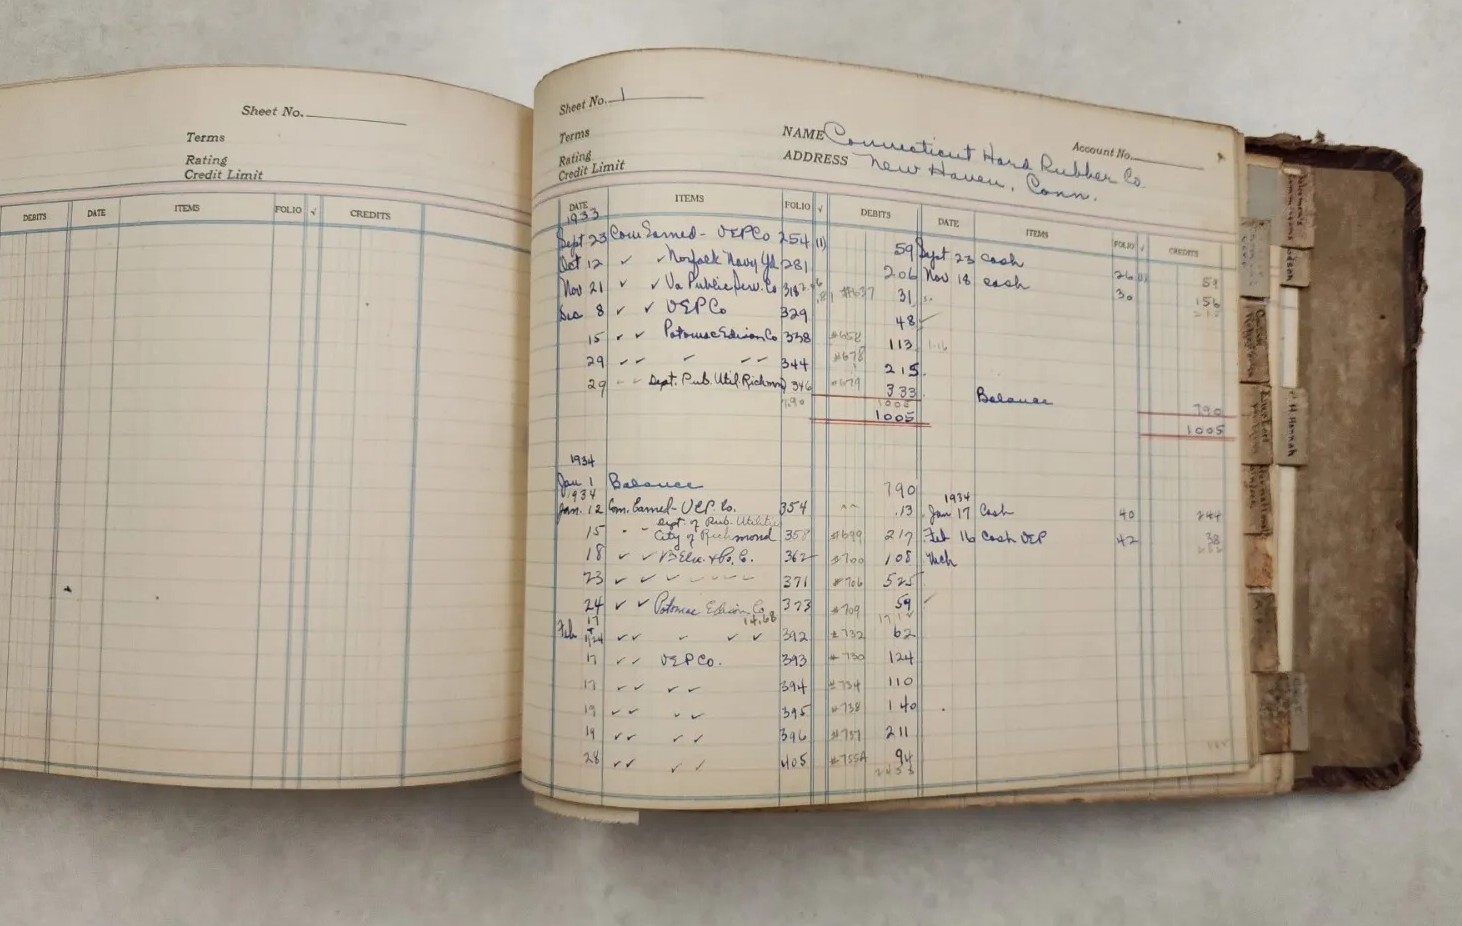 Sheet No.
Terms
Rating
Credit Limit
DEBITS DATE ITEMS FOLIO √ CREDITS
Sheet No. 1
Terms
Rating
Credit Limit
NAME Connecticut Hard Rubber Co.
ADDRESS New Haven, Conn.
Account No.
DATE ITEMS FOLIO √ DEBITS DATE ITEMS FOLIO √ CREDITS
1933
Sept 23 Com Earned - VEPCo 254 59 Sept 23 cash 26 59
Oct 12 ✓ ✓ Norfolk Navy Yd 281 206 Nov 18 cash 30 156
Nov 21 ✓ ✓ Va Public Serv. Co #637 31
Dec 8 ✓ ✓ VEPCo 329 48 ✓
15 ✓ ✓ Potomac Edison Co 338 #658 113
29 ✓ ✓ ✓ ✓ ✓ 344 #678 215
29 Dept. Pub. Util. Richmond 346 #679 333 Balance 790
790 1005
1005 1005
1934
Jan 1 Balance 790
1934 1934
Jan. 12 Com. Earned - VEP. Co. 354 13 Jan 17 Cash 40 244
15 Dept. of Pub. Utilities
City of Richmond 358 #699 217 Feb 16 Cash VEP 42 38
18 ✓ ✓ 362 #700 108
23 ✓ ✓ 371 #706 525
24 ✓ ✓ Potomac Edison Co. 373 #709 59 ✓
Feb 17 ✓ ✓ ✓ ✓ ✓ 392 #732 62
17 ✓ ✓ VEPCo. 393 #730 124
17 ✓ ✓ ✓ ✓ 394 #734 110
19 ✓ ✓ ✓ ✓ 395 #738 140
19 ✓ ✓ ✓ ✓ 396 #737 211
28 ✓ ✓ ✓ ✓ 405 #755A 94